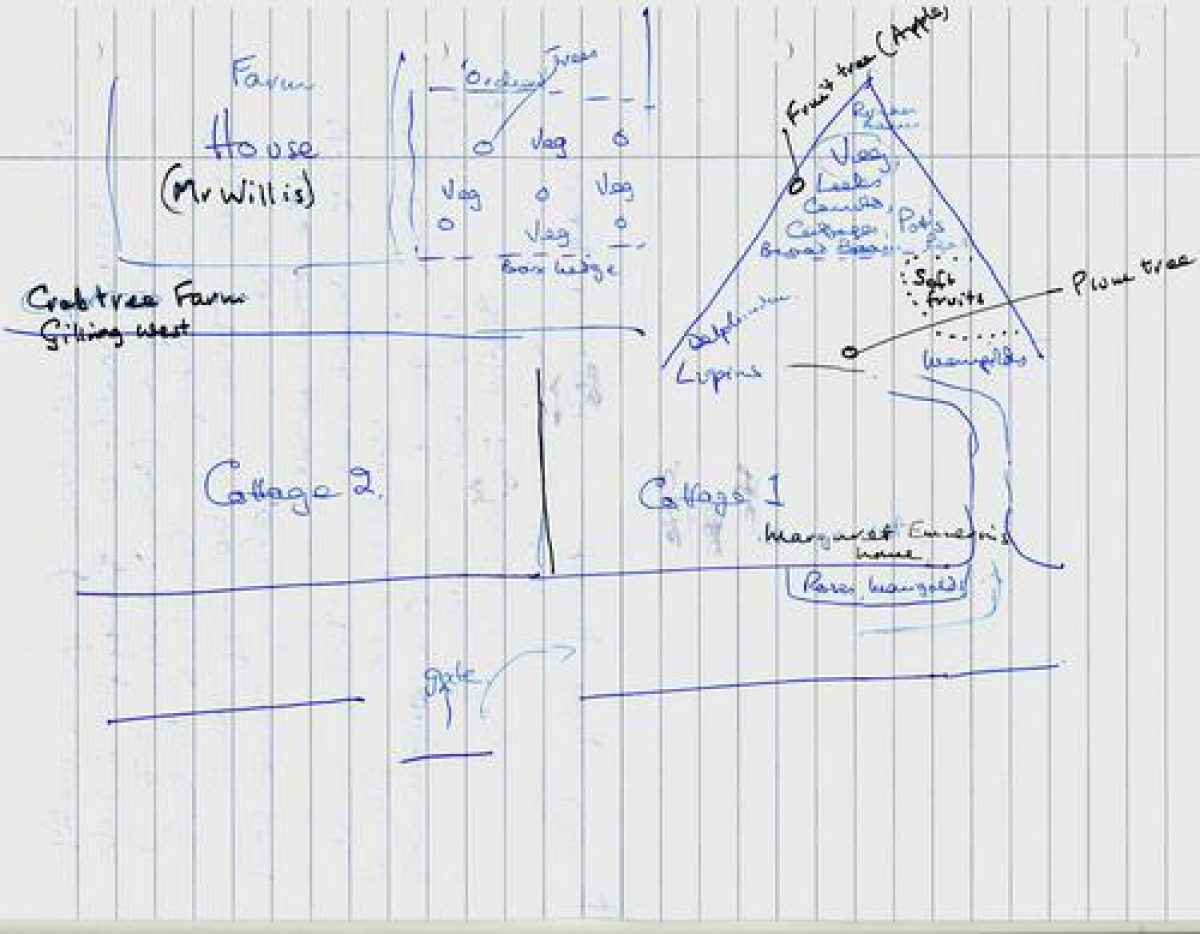 Farm
House
(Mr Willis)
Crabtree Farm
Gilling West
Trees
Veg
Veg
Veg
Veg
Box hedge
Fruit tree (Apple)
Veg,
Leeks
Carrots,
Cabbages,
Broad Beans
Pot's
Peas
Soft
fruits
Plum tree
Marigolds
Delphinium
Lupins
Cottage 2.
Cottage 1
Margaret
home
Roses, Marigolds
Gate